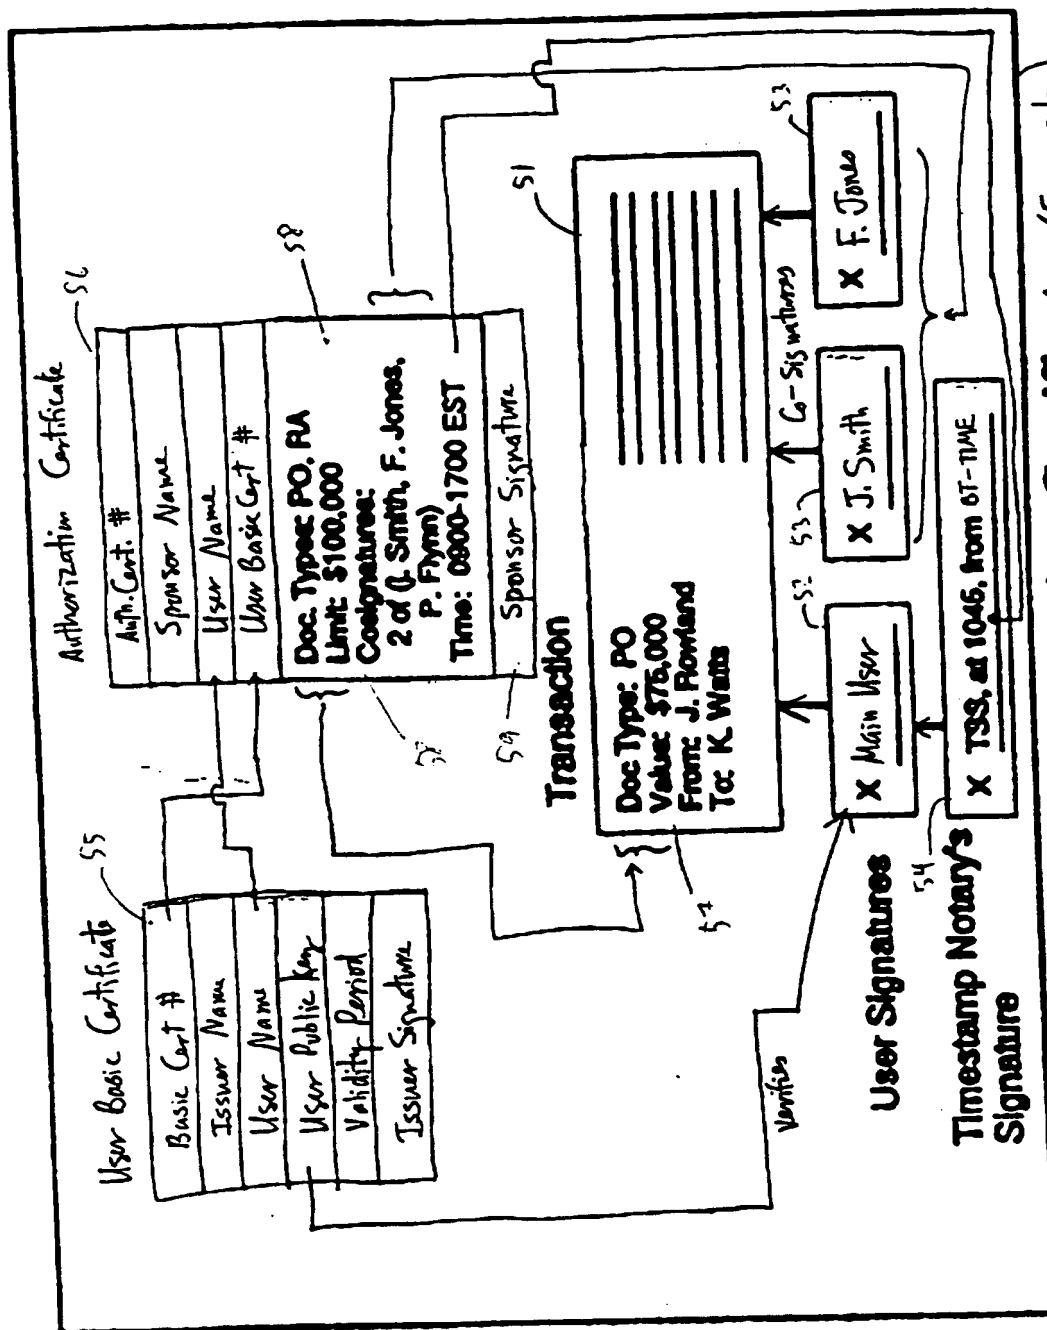 User Basic Certificate
55
Basic Cert #
Issuer Name
User Name
User Public Key
Validity Period
Issuer Signature
Authorization Certificate
56
Auth. Cert. #
Sponsor Name
User Name
User Basic Cert #
Doc. Types: PO, RA
Limit: $100,000
Cosignatures:
2 of (J. Smith, F. Jones,
P. Flynn)
Time: 0900-1700 EST
58
Sponsor Signature
59
Transaction
51
Doc Type: PO
Value: $75,000
From: J. Rowland
To: K. Watts
57
Verifies
Co-Signatures
User Signatures
X Main User
52
X J. Smith
53
X F. Jones
53
Timestamp Notary's
Signature
54
X TSS, at 1045, from BT-TIME